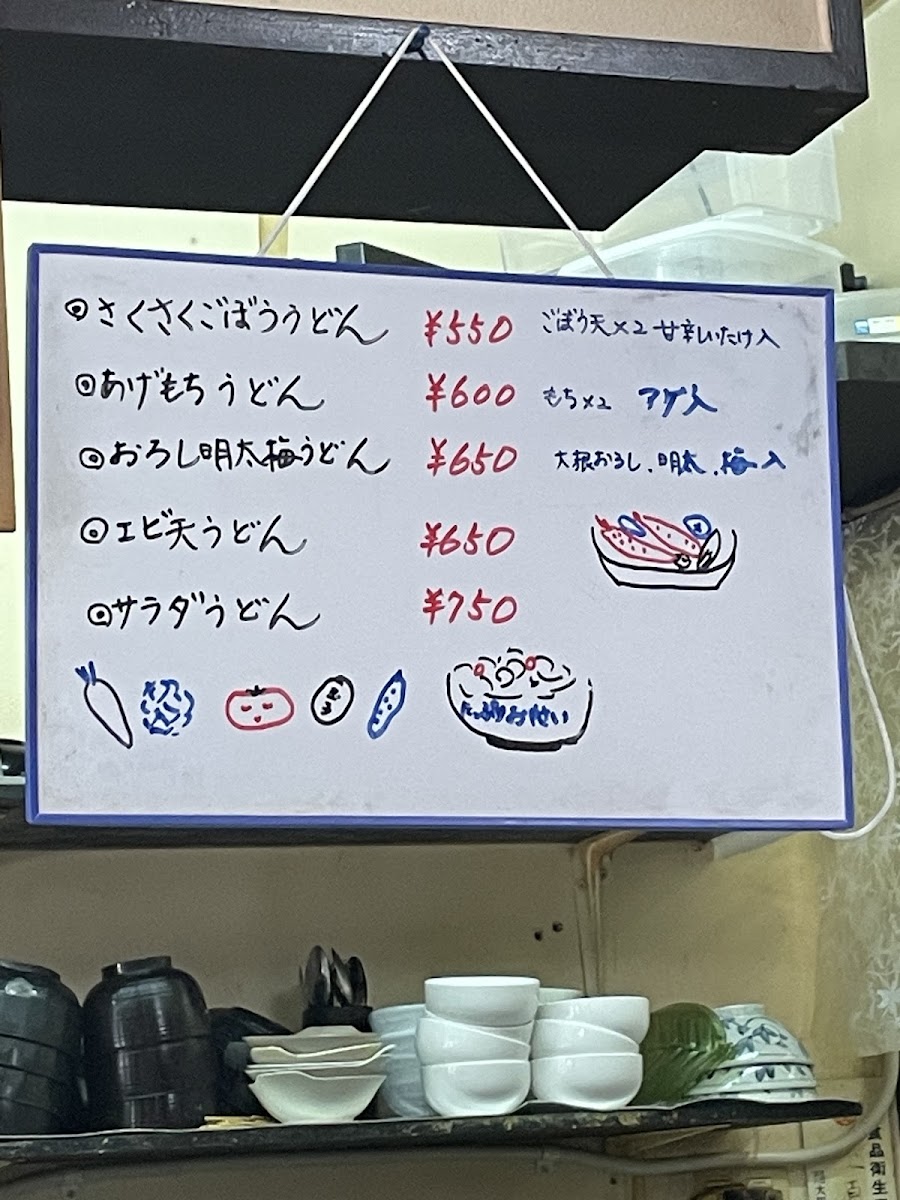 ◎さくさくごぼううどん ¥550 ごぼう天×2 甘辛しいたけ入
◎あげもちうどん ¥600 もち×2 アゲ入
◎おろし明太梅うどん ¥650 大根おろし、明太、梅入
◎エビ天うどん ¥650
◎サラダうどん ¥750
たっぷりおやさい
食品衛生